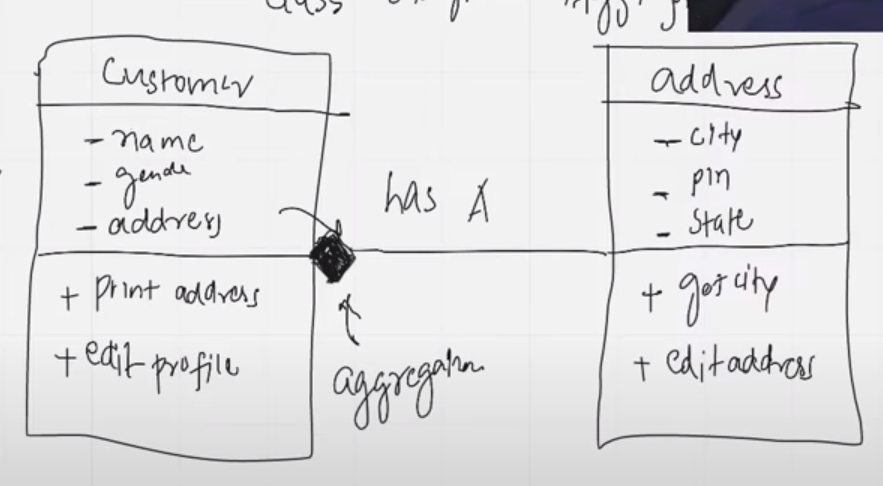 Class
Customer
- name
- gende
- address
+ print address
+ edit profile
has A
aggregation
address
- city
- pin
- State
+ get city
+ edit address